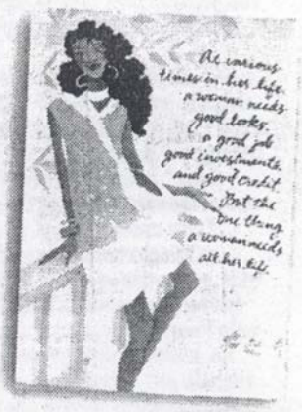 At various
times in her life,
a woman needs
good looks,
a good job
good investments,
and good credit.
But the
one thing
a woman needs
all her life.